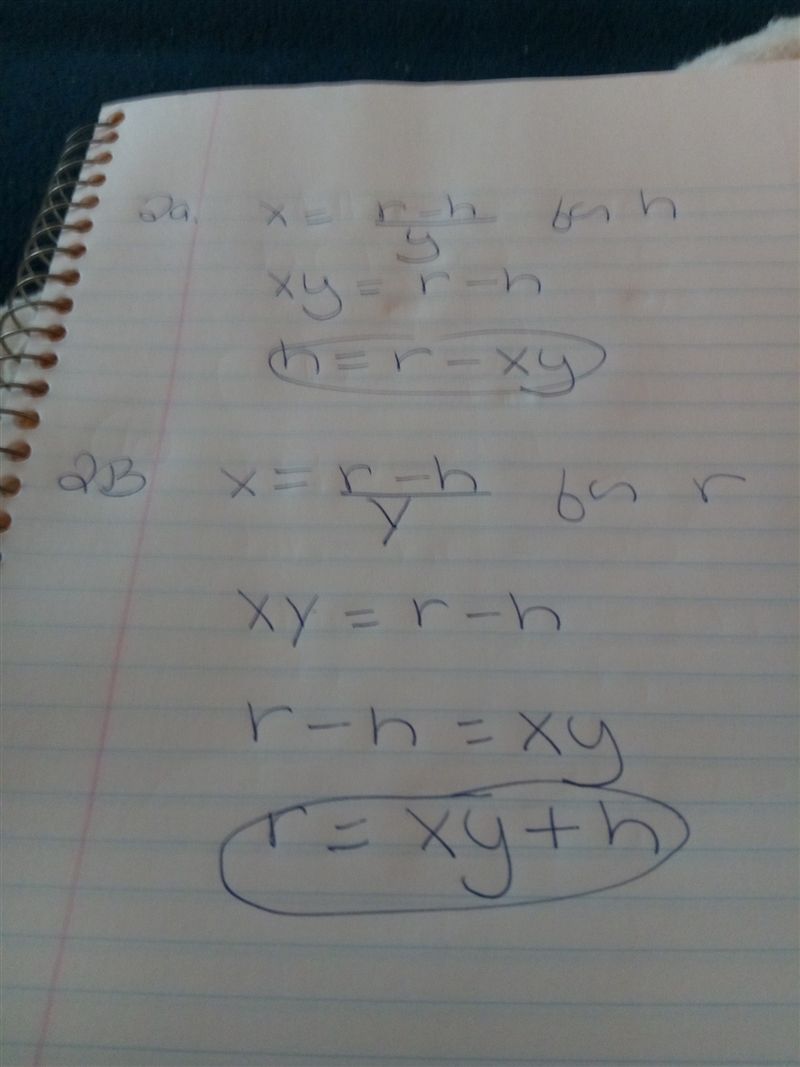 2a. x = (r-h)/y for h
xy = r-h
h = r - xy
2B x = (r-h)/y for r
xy = r-h
r-h = xy
r = xy+h